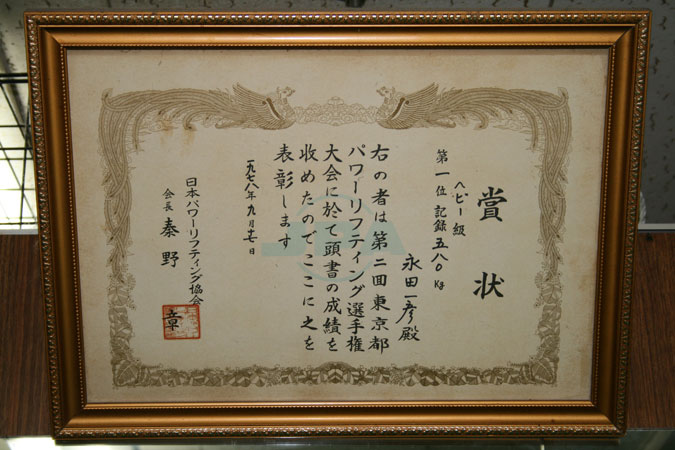 賞状
ヘビー級
第一位 記録 五八〇Kg
永田一彦殿
右の者は第二回東京都
パワーリフティング選手権
大会に於て頭書の成績を
収めたのでここに之を
表彰します
一九七八年九月十七日
日本パワーリフティング協会
会長 秦野章
JPA